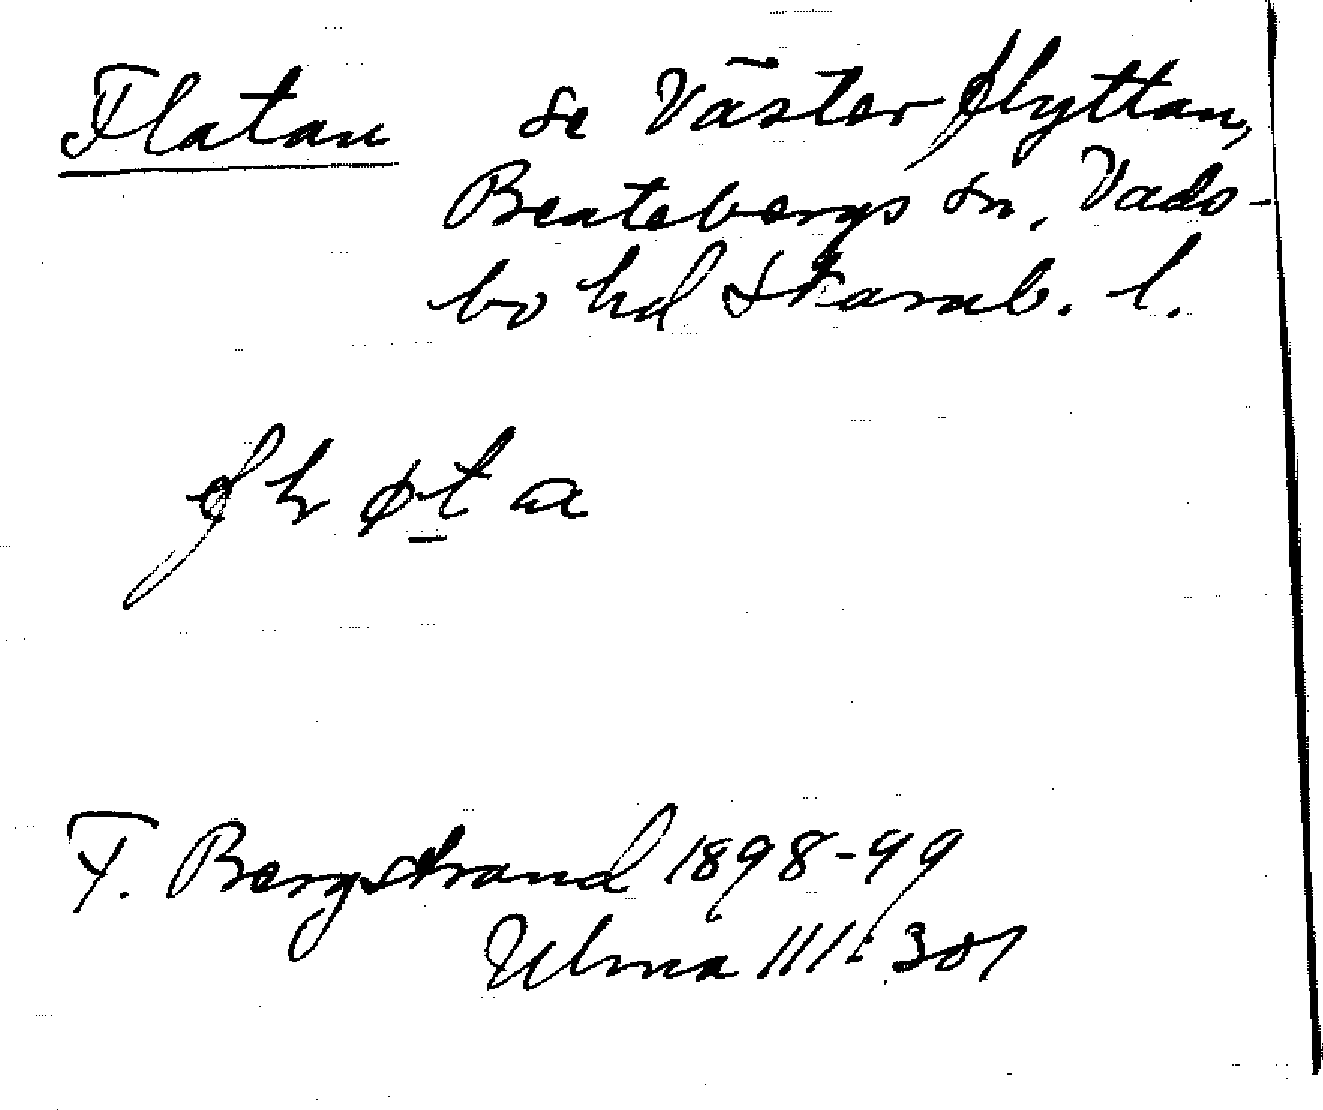 Flatan se Västerflyttan,
Beatebergs sn, Vads-
bo hd Skarab. l.
T. Bergstrand 1898-99
Ulma 111:301